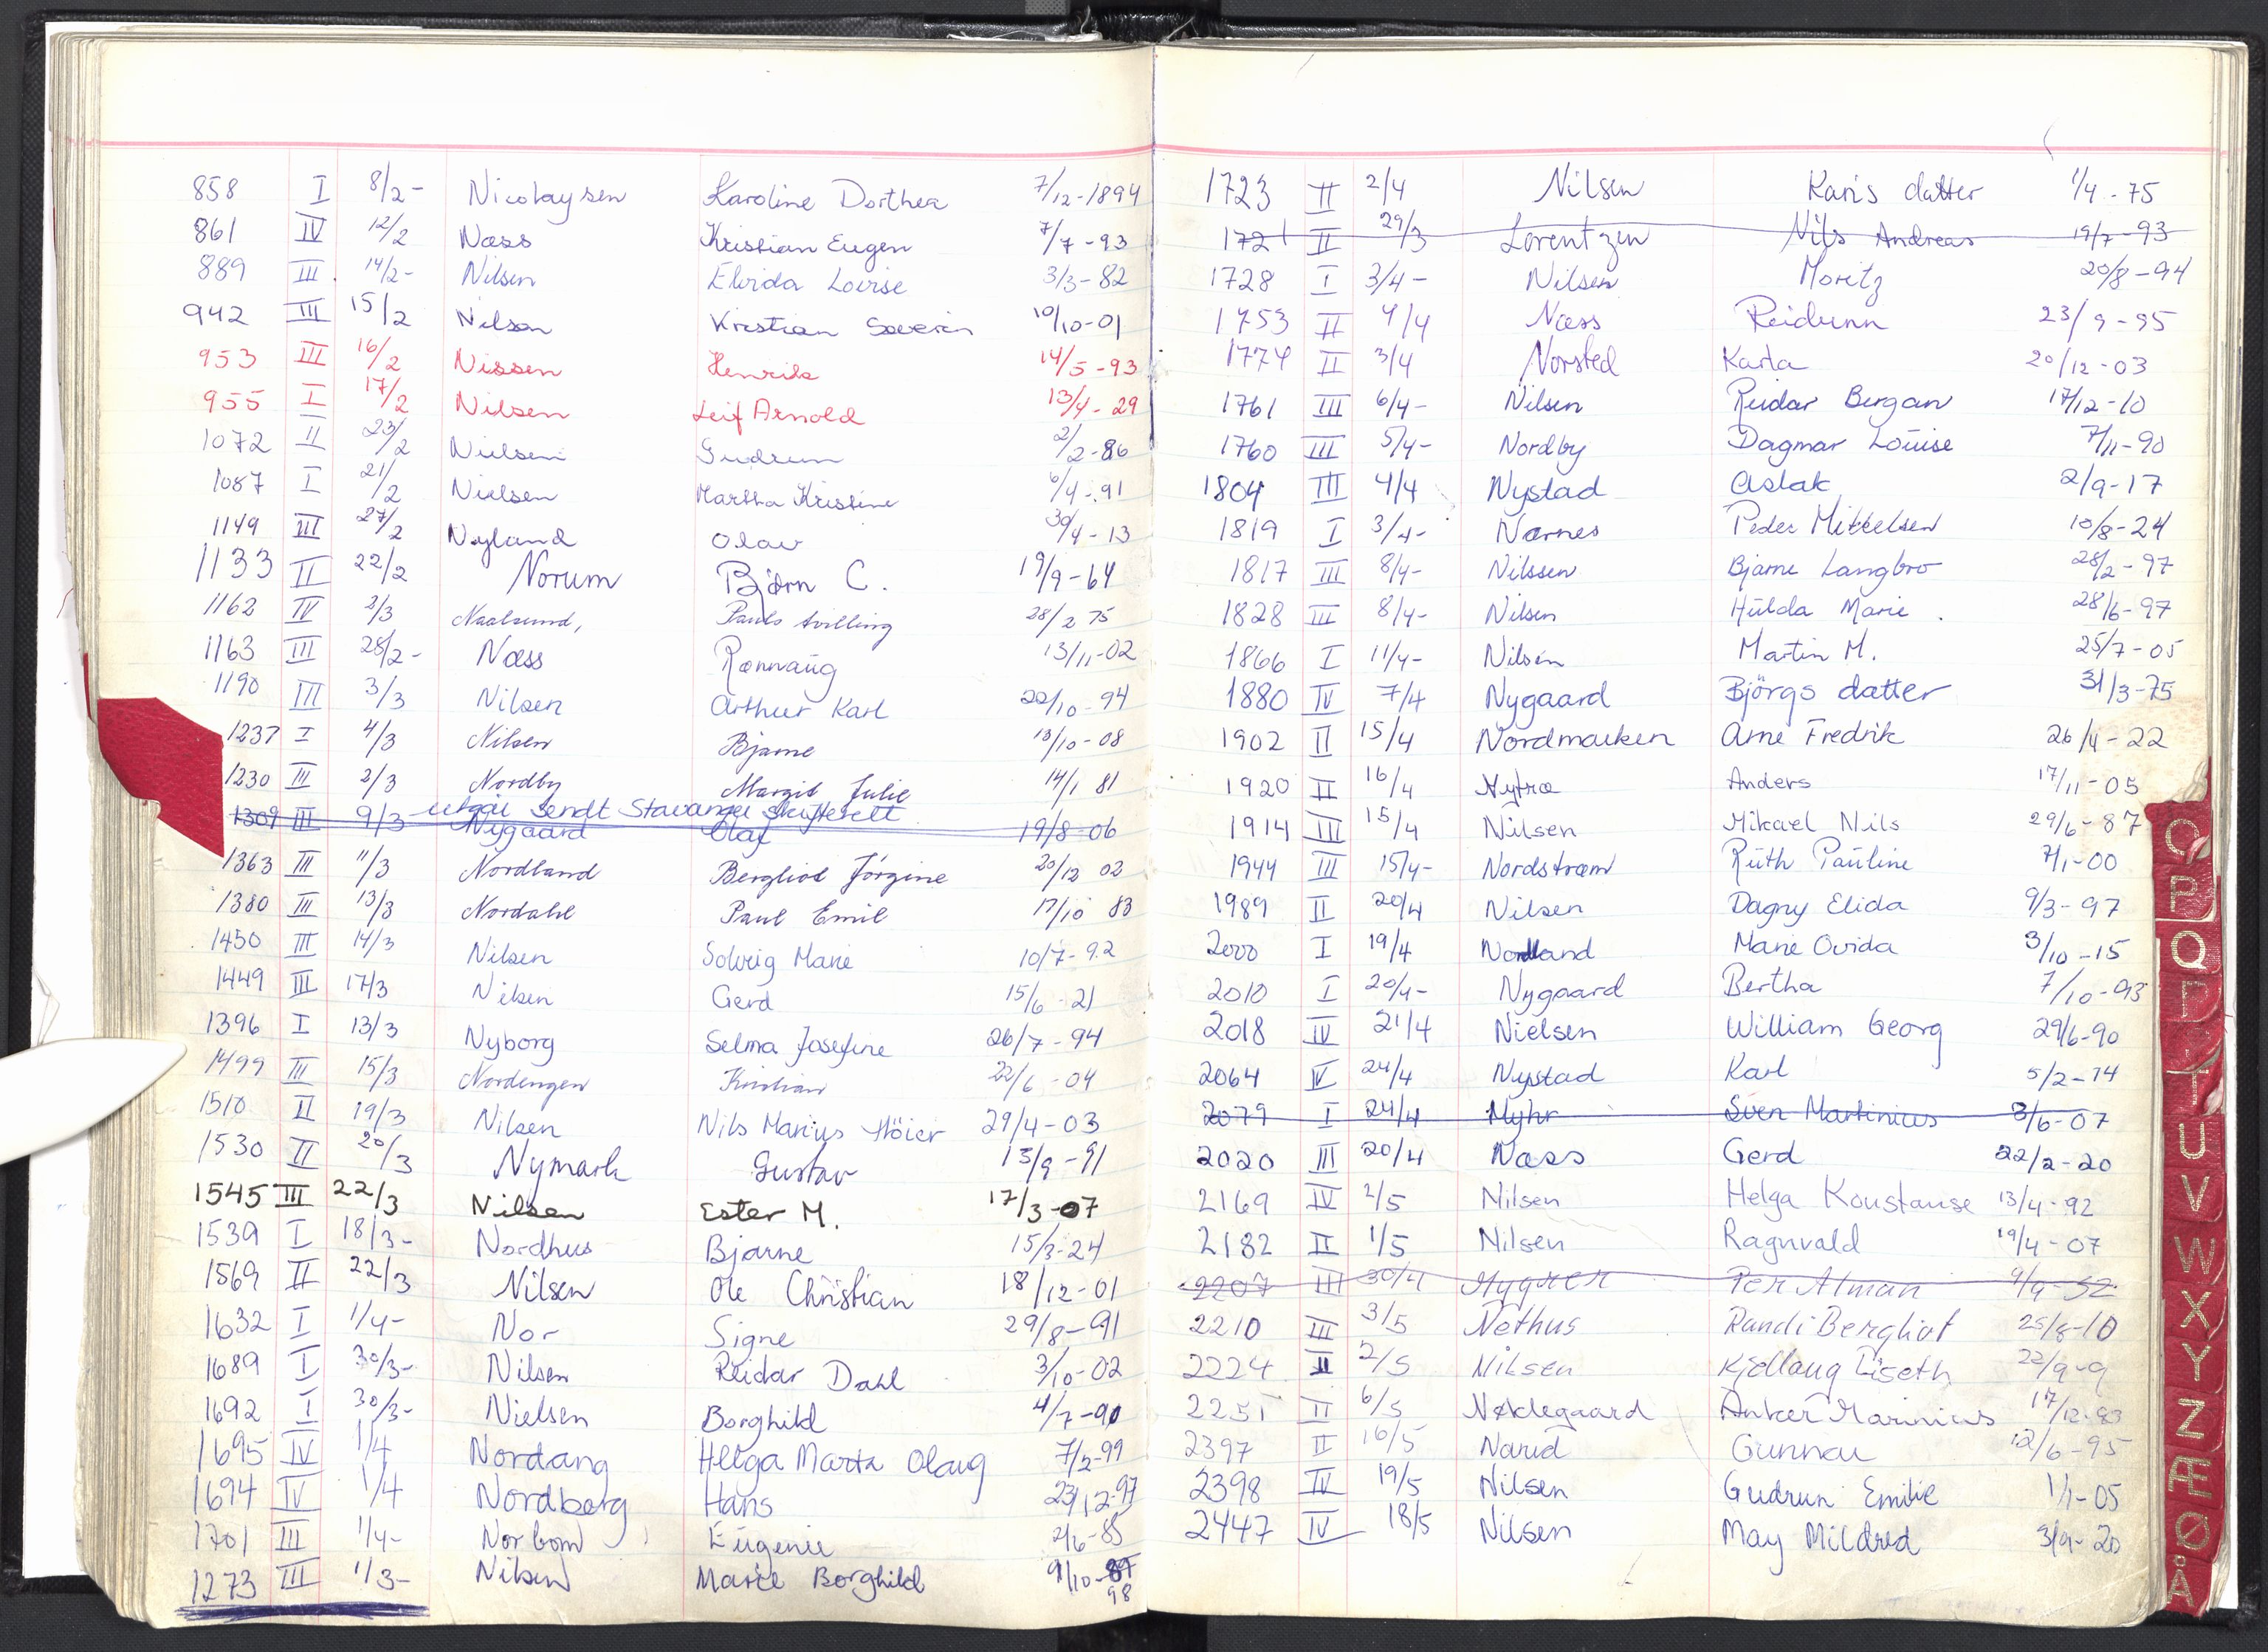 858 I 8/2- Nicolaysen Karoline Dorthea 7/12-1894
861 IV 12/2 Næss Kristian Eugen 7/7-93
889 III 14/2- Nilsen Elvida Lovise 3/3-82
942 III 15/2 Nilsen Kristian Severin 10/10-01
953 III 16/2 Nissen Henrik 14/5-93
955 I 17/2 Nilsen Leif Arnold 13/4-29
1072 II 23/2 Nielsen Gudrun 2/2-86
1087 I 21/2 Nielsen Martha Kristine 6/4-91
1149 III 27/2 Nyland Olav 30/4-13
1133 II 22/2 Norum Bjørn C. 19/9-64
1162 IV 2/3 Naalsund, Pauls tvilling 28/2 75
1163 III 28/2- Næss Rønnaug 13/11-02
1190 III 3/3 Nilsen Arthur Karl 22/10-94
1237 I 4/3 Nilsen Bjarne 13/10-08
1230 III 2/3 Nordby Margit Julie 14/1 81
utgår sendt Stavanger skifterett
1309 III 9/3 Nygaard Olaf 19/8-06
1363 III 11/3 Nordland Bergliot Jørgine 20/12 02
1380 III 13/3 Nordahl Paul Emil 17/10 83
1450 III 14/3 Nilsen Solveig Marie 10/7-92
1449 III 17/3 Nilsen Gerd 15/6-21
1396 I 13/3 Nyborg Selma Josefine 26/7-94
1499 III 15/3 Nordengen Kristian 22/6-04
1510 II 19/3 Nilsen Nils Marius Höier 29/4-03
1530 II 20/3 Nymark Gustav 13/9-91
1545 III 22/3 Nilsen Ester M. 17/3-07
1539 I 18/3- Nordhus Bjarne 15/3-24
1569 II 22/3 Nilsen Ole Christian 18/12-01
1632 I 1/4- Nor Signe 29/8-91
1689 I 30/3- Nilsen Reidar Dahl 3/10-02
1692 I 30/3- Nielsen Borghild 4/7-90
1695 IV 1/4 Nordang Helga Marta Olaug 7/2-99
1694 IV 1/4 Nordberg Hans 23/12-97
1701 III 1/4- Norbom Eugenie 2/6-85
1273 III 1/3- Nilsen Marie Borghild 9/10-
98
1723 II 2/4 Nilsen Karis datter 1/4-75
1721 II 29/3 Lorentzen Nils Andreas 19/7-93
1728 I 3/4- Nilsen Moritz 20/8-94
1753 II 4/4 Næss Reidunn 23/9-95
1774 II 3/4 Norsted Karla 20/12-03
1761 III 6/4- Nilsen Reidar Bergan 17/12-10
1760 III 5/4- Nordby Dagmar Louise 7/11-90
1804 III 4/4 Nystad Aslak 2/9-17
1819 I 3/4- Nærnes Peder Mikkelsen 10/8-24
1817 III 8/4- Nilssen Bjarne Langbro 28/2-97
1828 III 8/4- Nilsen Hulda Marie 28/6-97
1866 I 11/4- Nilsen Martin M. 25/7-05
1880 IV 7/4 Nygaard Björgs datter 31/3-75
1902 II 15/4 Nordmarken Arne Fredrik 26/4-22
1920 II 16/4 Nytrø Anders 17/11-05
1914 III 15/4 Nilsen Mikael Nils 29/6-87
1944 III 15/4- Nordstrøm Ruth Pauline 7/1-00
1989 II 20/4 Nilsen Dagny Elida 9/3-97
2000 I 19/4 Nordland Marie Ovida 3/10-15
2010 I 20/4- Nygaard Bertha 7/10-93
2018 IV 21/4 Nielsen William Georg 29/6-90
2064 IV 24/4 Nystad Karl 5/2-14
2079 I 24/4 Myhr Sven Martinius 3/6-07
2020 III 20/4 Næss Gerd 22/2-20
2169 IV 2/5 Nilsen Helga Konstanse 13/4-92
2182 II 1/5 Nilsen Ragnvald 19/4-07
2207 III 30/4 Per Alman
2210 III 3/5 Nethus Randi Bergliot 25/8-10
2224 II 2/5 Nilsen Kjellaug Liseth 22/9-9
2251 II 6/5 Nøklegaard Anker Marinius 17/12-83
2397 II 16/5 Narud Gunnar 12/6-95
2398 IV 19/5 Nilsen Gudrun Emilie 1/1-05
2447 IV 18/5 Nilsen May Mildred 3/9-20
O
P
Q
U
V
W
X
Y
Z
Æ
Ø
Å